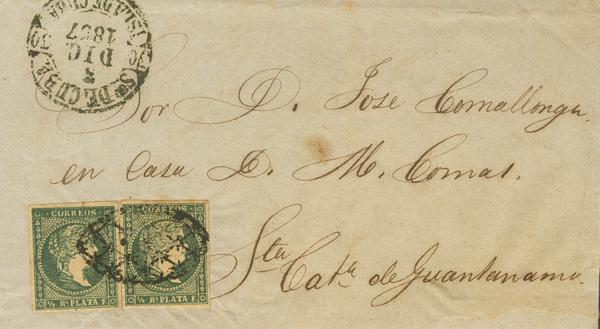 Sº DE CUBA
ISLA DE CUBA
3
DIC
1857
Sor D. Jose Comallonga.
en Casa D. M. Comas.
Sta
Cata de Guantanamo.
CORREOS
½ Rl. PLATA F.
CORREOS
½ Rl. PLATA F.